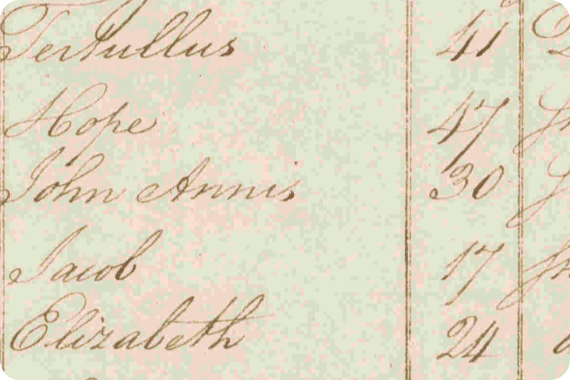 Tertullus 41
Hope 47
John Annis 30
Jacob 17
Elizabeth 24